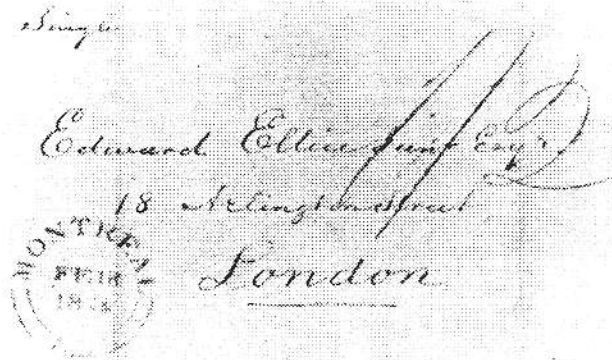 Single
Edward Ellice Junr Esqr
18 Arlington Street
London
MONTREAL
FE 18